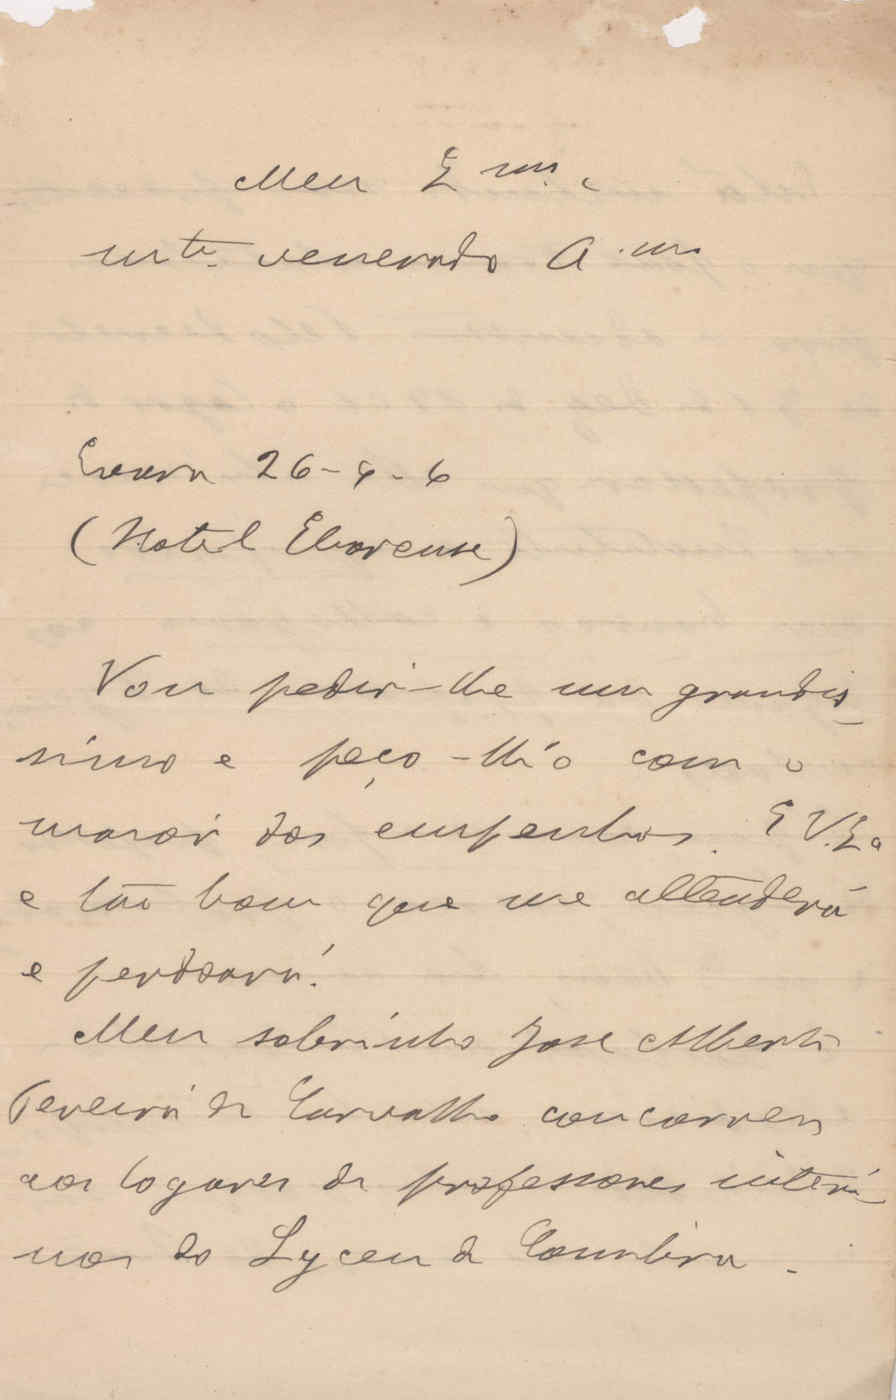 Meu Ex.mo e
m.to venerado A.mo
Evora 26-9-6
(Hotel Eborense)
Vou pedir-lhe um grandis-
simo e peço-lh'o com o
maior dos empenhos. E V. Ex.a
e tão bom que me attenderá
e perdoará!
Meu sobrinho José Alberto
Pereira de Carvalho concorreu
aos logares de professores interi-
nos do Lyceu de Coimbra.